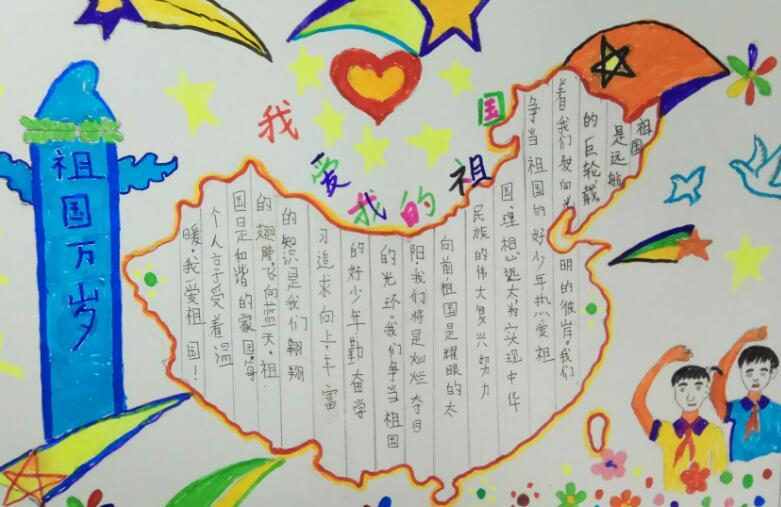 我爱我的祖国
祖国万岁
祖国
是远航
的巨轮载
着我们驶向光明的彼岸。我们
争当祖国的好少年热爱祖
国.理想远大为实现中华
民族的伟大复兴努力
向前.祖国是耀眼的太
阳.我们将是灿烂夺目
的光环.我们争当祖国
的好少年勤奋学
习追求向上.丰富
的知识是我们翱翔
的翅膀.飞向蓝天.祖
国是和谐的家园.每
个人享受着温
暖.我爱祖国!